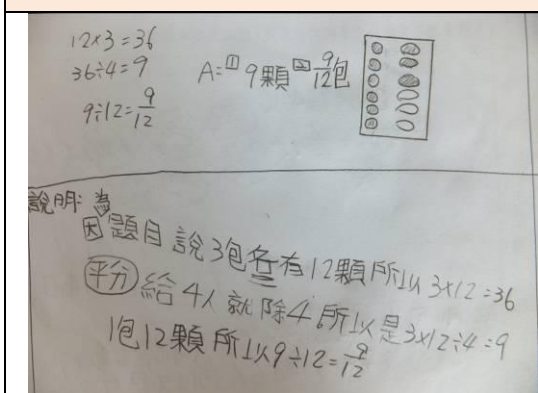 12×3=36
36÷4=9
9÷12=9/12
A=① 9顆 ② 9/12包
說明:
因為題目說3包各有12顆所以3×12=36
平分給4人就除4所以是3×12÷4=9
1包12顆所以9÷12=9/12